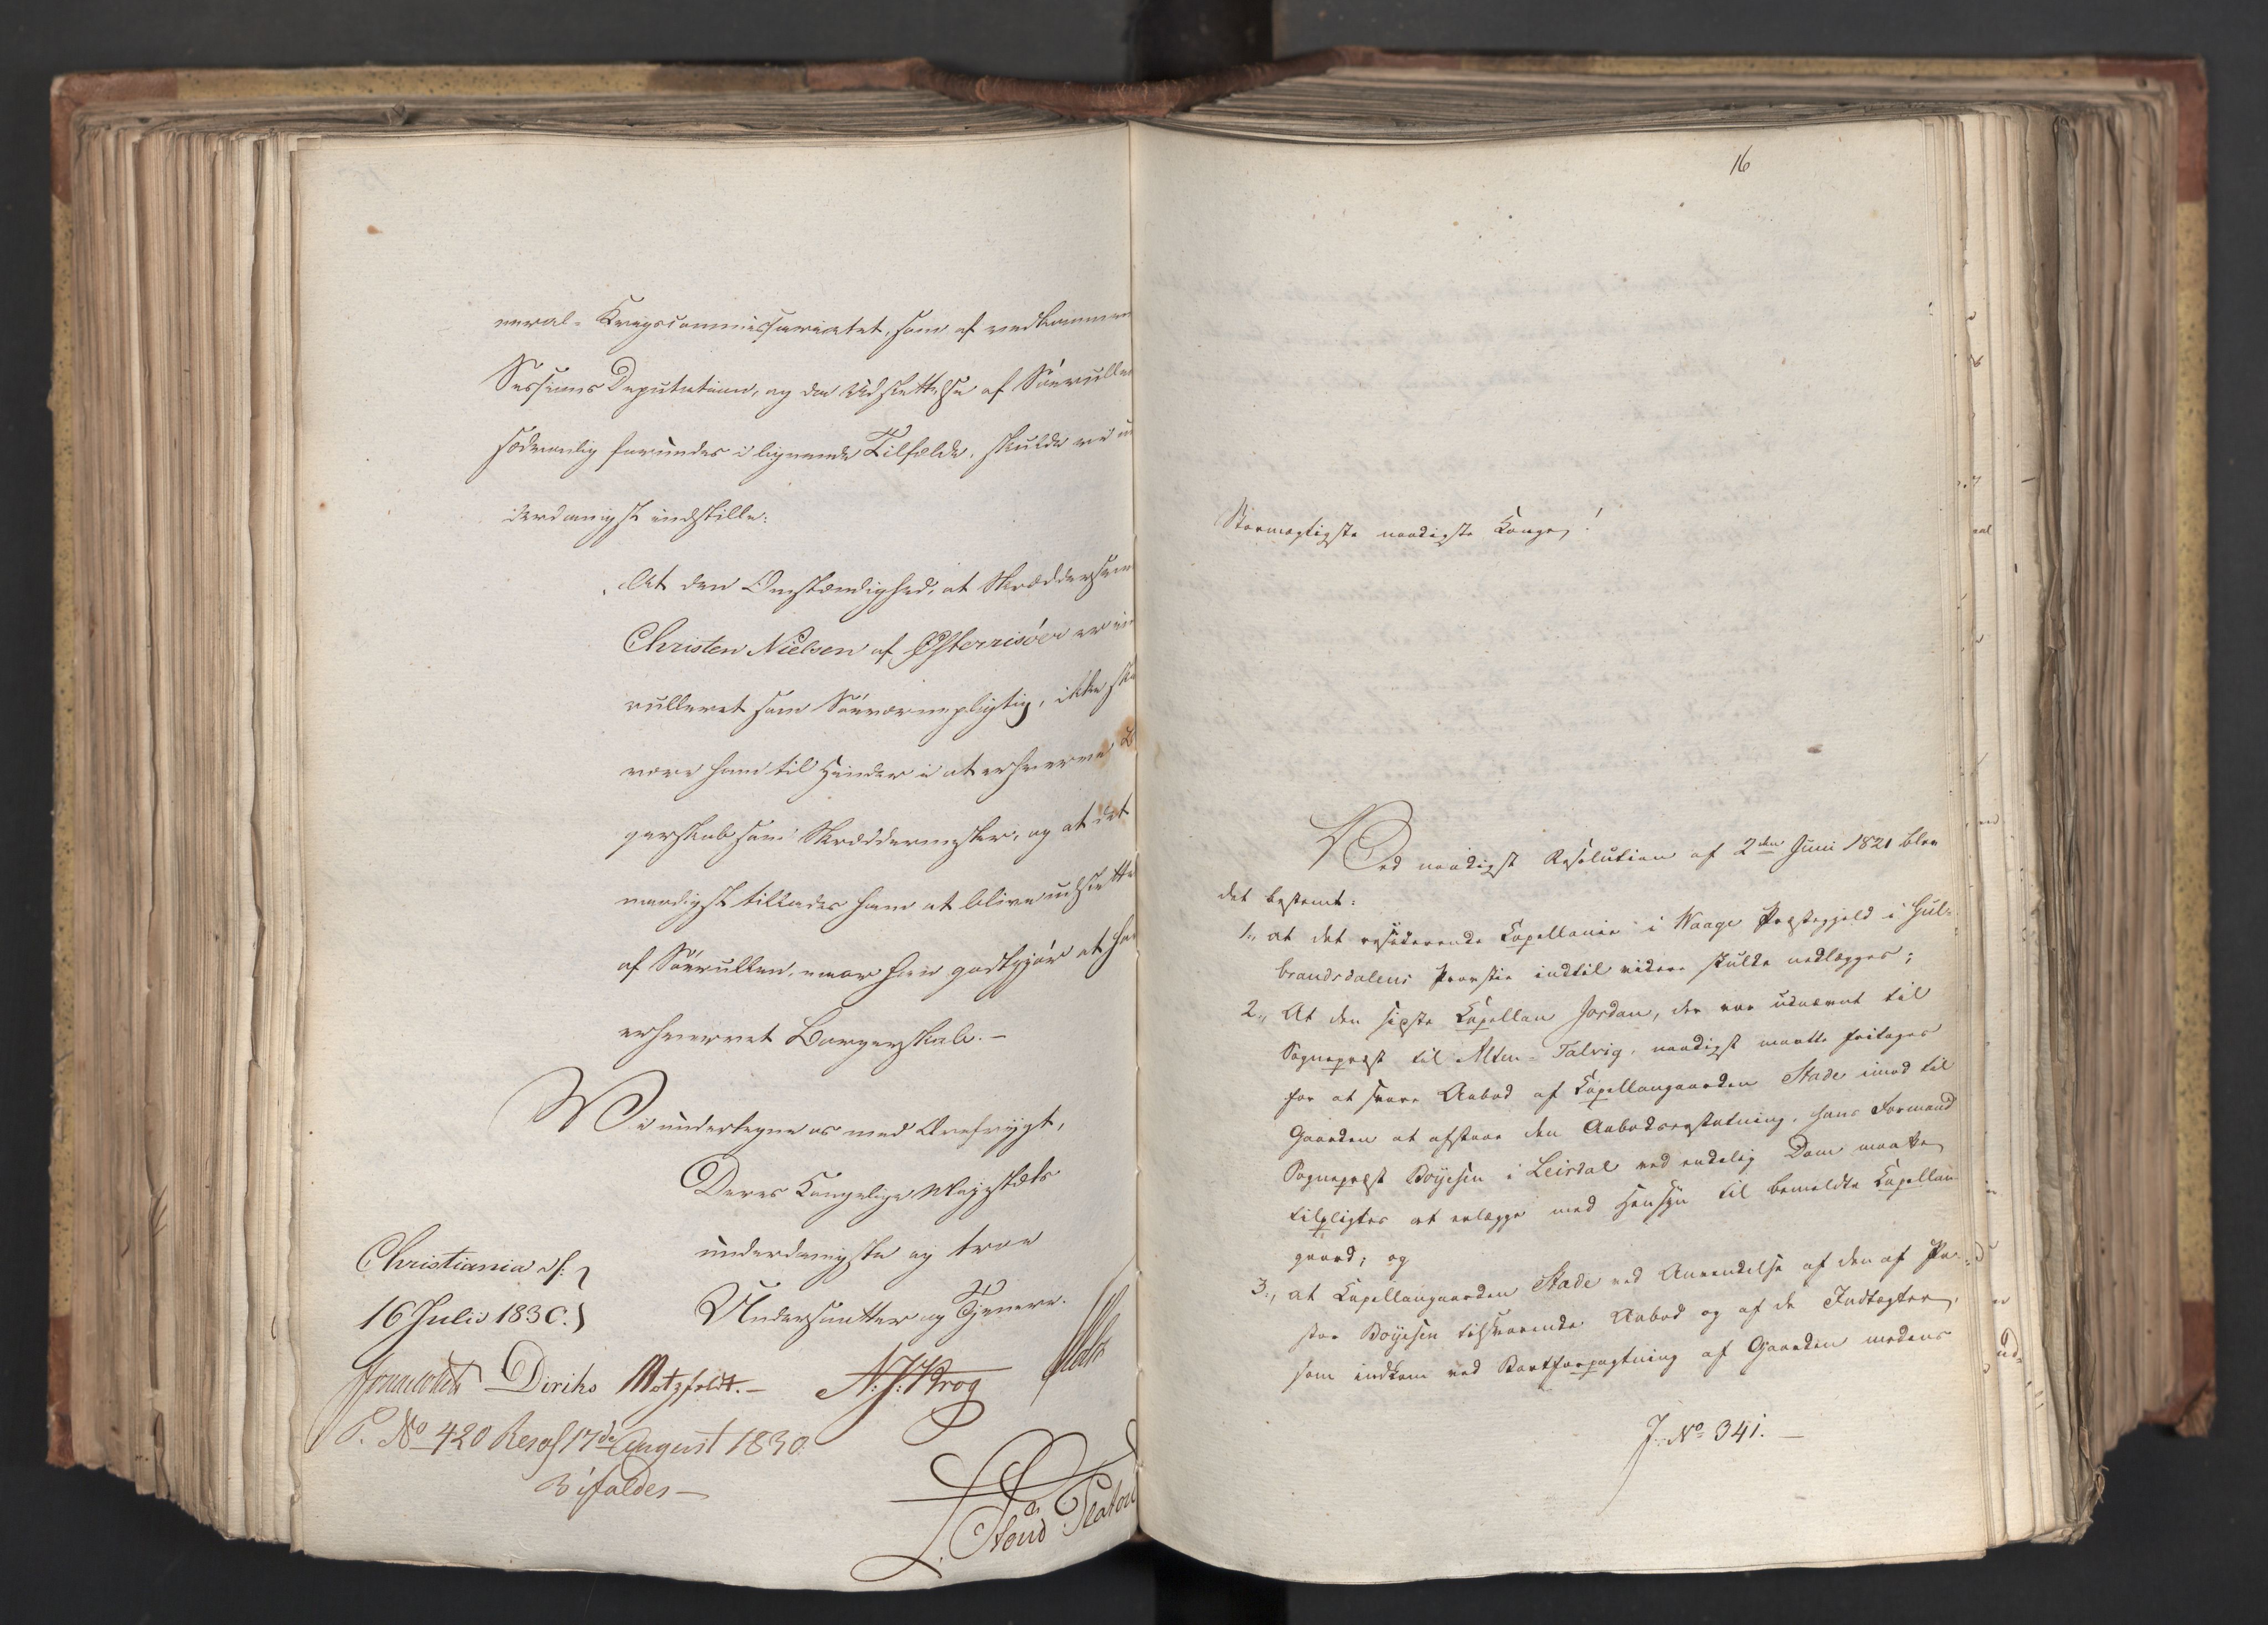 neral-Krigscommissariatet, som af vedkommen
Sessions Deputation, og da Udslettelse af Søerullen
sædvanlig forundes i lignende Tilfælde, skulde vi un
derdanigst indstille:
At den Omstændighed, at Skrædersvend
Christen Nielsen af Østerrisöer er in
rulleret som Søeværnepligtig, ikke ska
være ham til Hinder i at erhverve B
gerskab som Skræddermester, og at det
naadigst tillades ham at blive udslette
af Søerullen, naar han godtgjør at ha
erhvervet Borgerskab. —
Vi undertegne os med Ærefrygt,
Deres Kongelige Majestæts
underdanigste og troe
Undersaatter og Tjenere.
Christiania d:
16 Julii 1830.
Diriks Motzfeldt. — N: J: Krog
P. No 420 Resol 17de August 1830
Bifaldes —
Stoud Platou
16
Stormægtigste naadigste Konge!
Ved naadigst Resolution af 2den Juni 1821 blev
det bestemt:
1., at det residerende Capellanie i Waage Præstegjeld i Gul-
brandsdalens Provstie indtil videre skulde nedlægges;
2., At den sidste Capellan Jordan, der var udnævnt til
Sognepræst til Alten-Talvig, naadigst maatte fritages
for at svare Aabod af Capellangaarden Stade imod til
Gaarden at afstaae den Aabodserstatning, hans Formand
Sognepræst Boyesen i Leirdal ved endelig Dom maatte
tilpligtes at erlægge med Hensyn til bemeldte Capellan
gaard; og
3., at Capellangaarden Stade ved Anvendelse af den af Pa-
stor Boyesen tilsvarende Aabod og af de Indtægter,
som indkom ved Bortforpagtning af Gaarden medens
J. No 341. —